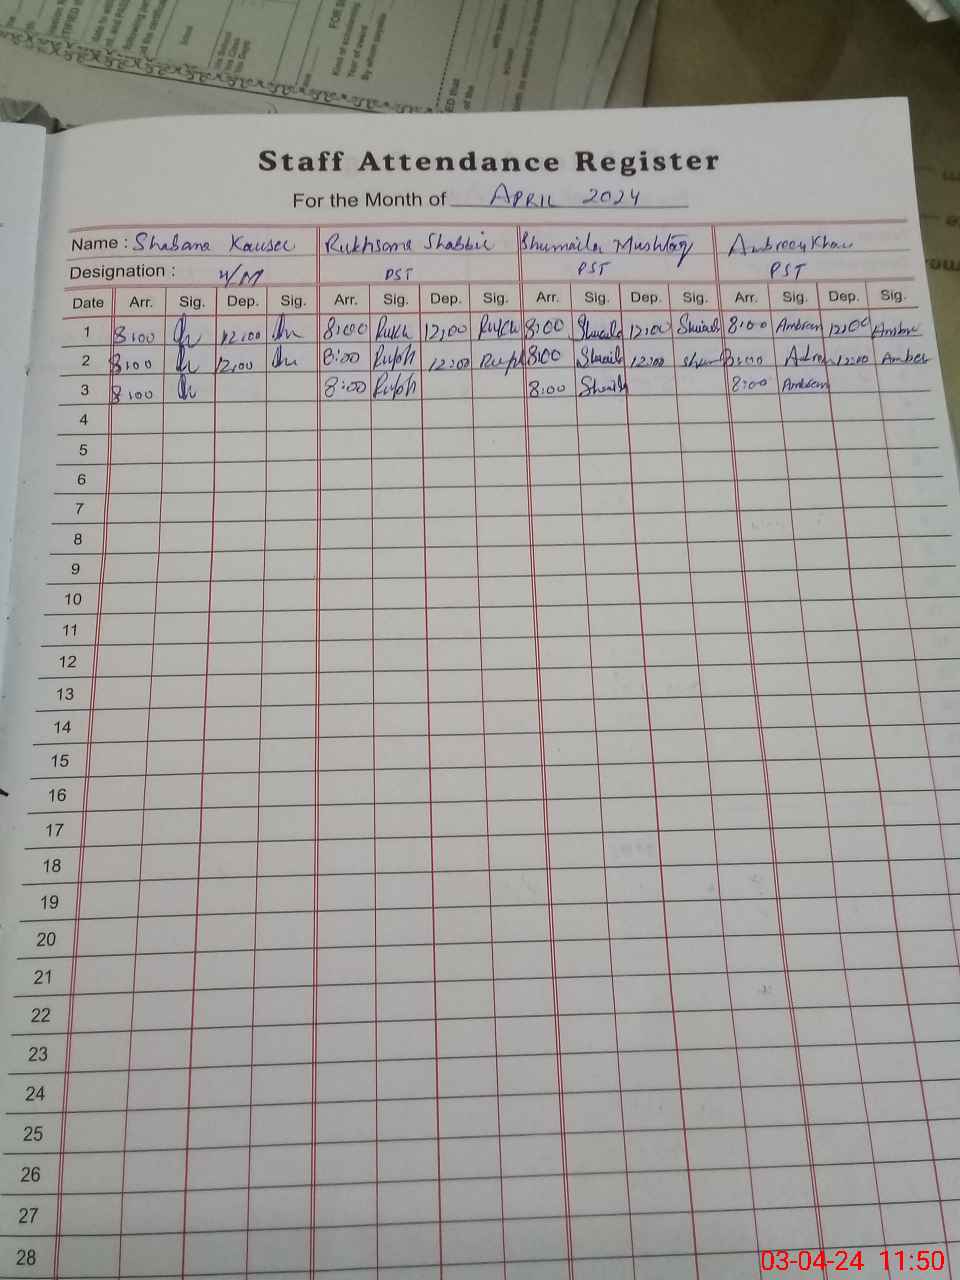 Kind of schooling
Year of award
By whom awarded
school
Staff Attendance Register
For the Month of APRIL 2024
Name : Shabana Kauser Rukhsana Shabbir Shumaila Mushtaq Ambreen Khan
Designation : H/M PST PST PST
Date Arr. Sig. Dep. Sig. Arr. Sig. Dep. Sig. Arr. Sig. Dep. Sig. Arr. Sig. Dep. Sig.
1 8:00 12:00 8:00 Rukh 12:00 Rukh 8:00 12:00 8:00 Ambreen 12:00
2 8:00 12:00 8:00 Rukh 12:00 8:00 12:00 8:00 12:00 Amber
3 8:00 8:00 Rukh 8:00 8:00 Ambreen
4
5
6
7
8
9
10
11
12
13
14
15
16
17
18
19
20
21
22
23
24
25
26
27
28
03-04-24 11:50